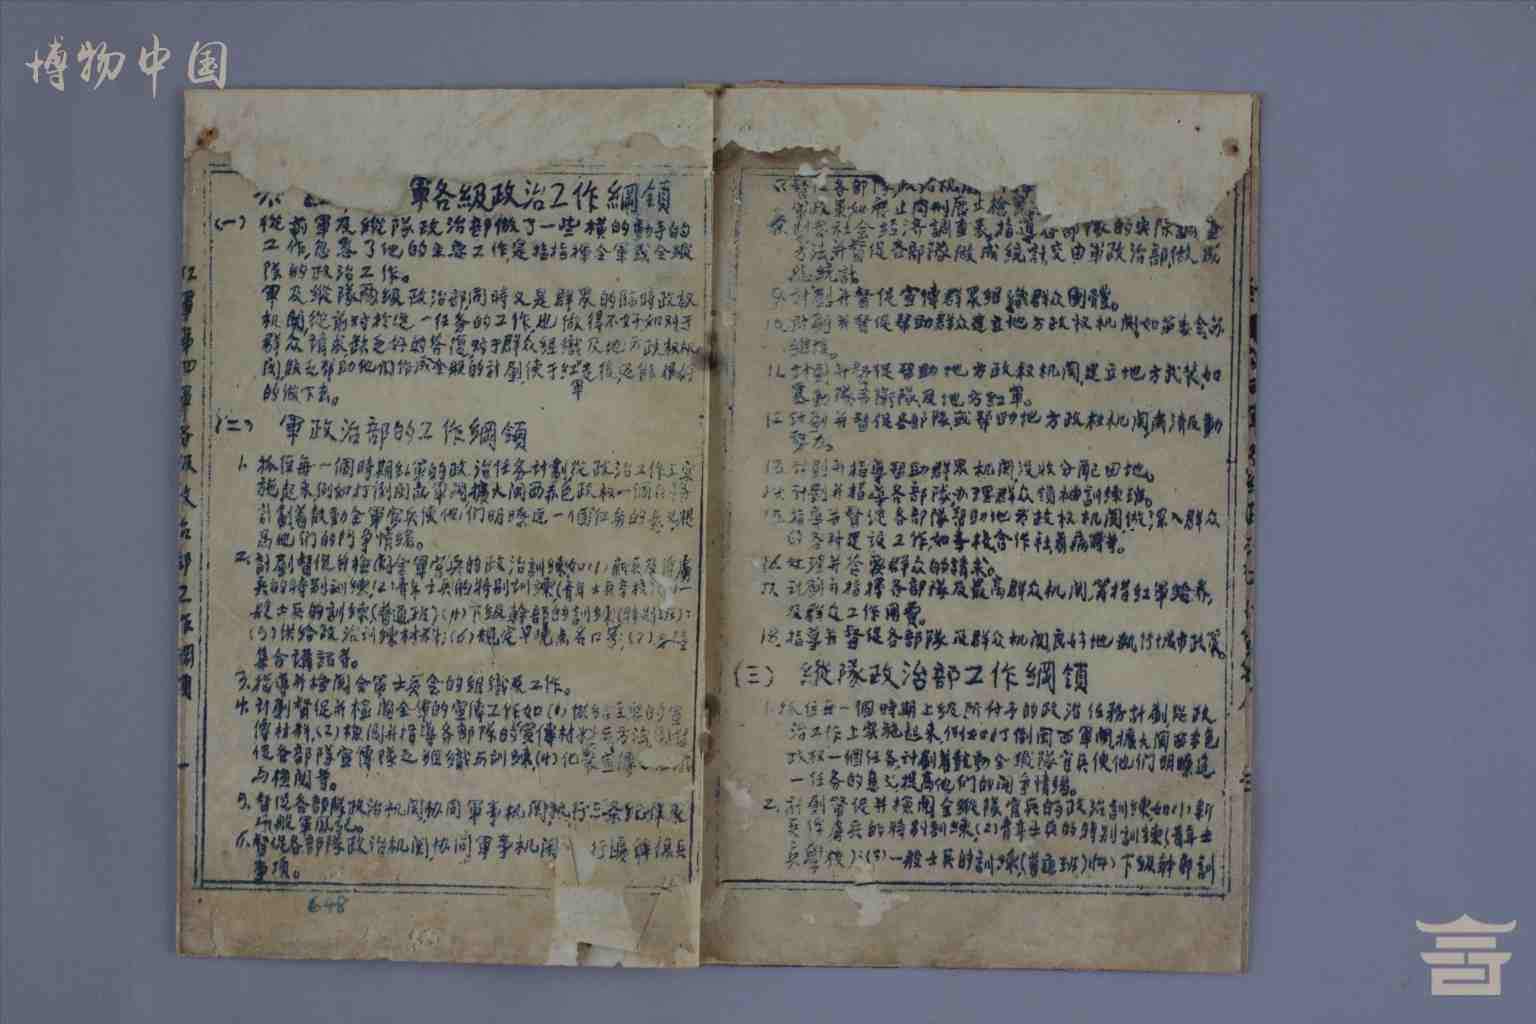 博物中国
軍各級政治工作綱領
(一) 從前軍及縱隊政治部做了一些橫的動手的
工作,忽畧了他的主要工作,是指揮全軍或全縱
隊的政治工作。
軍及縱隊兩級政治部同時又是群衆的臨時政权
机関,從前对於這一任务的工作也做得不好如对于
群众請求缺乏好的答復,对于群众組織及地方政权机
関缺乏帮助他們作成全般的計劃,使于紅軍走後,还能很好
的做下去。
(二) 軍政治部的工作綱領
1. 抓住每一個時期紅軍的政治任务計劃從政治工作上实
施起来例如打倒閩西軍閥擴大閩西赤色政权一個任务
計劃着鼓動全軍官兵使他們明瞭這一個任务的意义提
高他們的鬥争情緒。
2. 計劃督促并檢閱全軍官兵的政治訓練如(1)新兵及俘虜
兵的特别訓練,(2)青年士兵的特别訓練(青年士兵学校)
般士兵的訓練(普通班)(4)下級幹部的訓練
(5)供給政治訓練材料;(6)規定早晚点名口号;(7)
集合講話等。
3. 指導并檢閱全軍士兵会的組織及工作。
4. 計劃督促并檢閱全軍的宣傳工作如(1)
傳材料,(2)檢閱并指導各部隊的宣傳材料与方法,
促各部隊宣傳隊之組織与訓練,(4)化装宣傳
与檢閱等。
5. 督促各部隊政治机関协同軍事机関执行三条紀律
風紀。
6. 督促各部隊政治机関,协同軍事机関 行優待俘兵
事項。
648
紅軍第四軍各級政治部工作綱領
一
督促各部隊政治机関
政策如廢止肉刑廢止槍
社会經济調查表,指導各部隊的实际調查
方法并督促各部隊做成統計,交由軍政治部,做成
总統計。
9. 計劃并督促宣傳群衆組織群众團體。
10. 計劃并督促幫助群众建立地方政权机関,如革委会苏
維埃。
11. 計劃并督促幫助地方政权机関,建立地方武装,如
暴動隊赤衛隊及地方紅軍。
12. 計劃并督促各部隊或帮助地方政权机関肅清反動
势力。
13. 計劃并指導帮助群衆机関没收分配田地。
14. 計劃并指導各部隊办理群众領袖訓練班。
15. 指導并督促各部隊帮助地方政权机関,做深入群众
的各种建設工作,如学校合作社看病所等。
16. 处理并答覆群众的請求。
17. 計劃并指揮各部隊及最高群众机関,籌措紅軍給养,
及群众工作用費。
18. 指導并督促各部隊及群众机関良好地執行城市政策。
(三) 縱隊政治部工作綱領
1. 抓住每一個時期上級所付予的政治任務計劃從政
治工作上实施起来,例如打倒閩西軍閥,擴大閩西赤色
政权一個任务計劃着鼓動全縱隊官兵使他們明瞭這
一任务的意义提高他們的鬥争情緒。
2. 計劃督促并檢閱全縱隊官兵的政治訓練如(1)新
兵俘虜兵的特别訓練,(2)青年士兵的特别訓練(青年士
兵學校);(3)一般士兵的訓練(普通班)(4)下級幹部訓